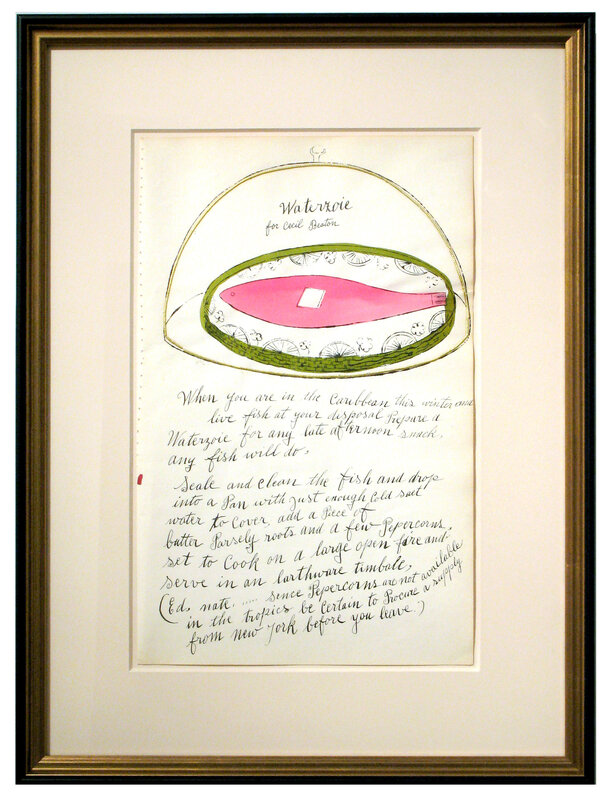 Waterzoie
for Cecil Beaton
When you are in the Caribbean this winter and
live fish at your disposal Prepare a
Waterzoie for any late afternoon snack.
any fish will do.
Scale and clean the fish and drop
into a Pan with just enough Cold salt
water to Cover, add a Piece of
butter Parsely roots and a few Pepercorns,
set to Cook on a large open fire and
serve in an earthware timbale,
(Ed. note. ..... sence Pepercorns are not available
in the tropics be Certain to Procure a supply
from New York before you leave.)